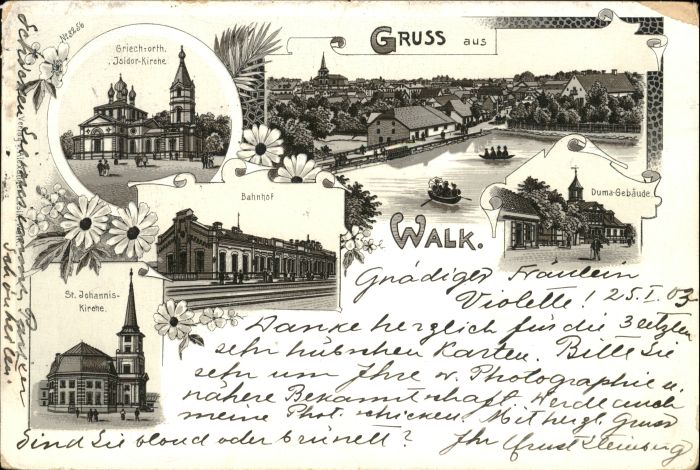 No 5256
Griech: orth.
Isidor-Kirche
GRUSS aus
WALK.
Duma-Gebäude.
Bahnhof
St. Johannis-
Kirche.
Gnädiges Fräulein
Violette! 25.I.03
Danke herzlich für die 3 letzten
sehr hübschen Karten. Bitte Sie
sehr um Ihre w. Photographie u.
nähere Bekanntschaft. Werde auch
meine Phot. schicken. Mit herzl. Gruss
Sind Sie blond oder brünett? Ihr Ernst Steinberg
Schicken Sie
Schönheiten.